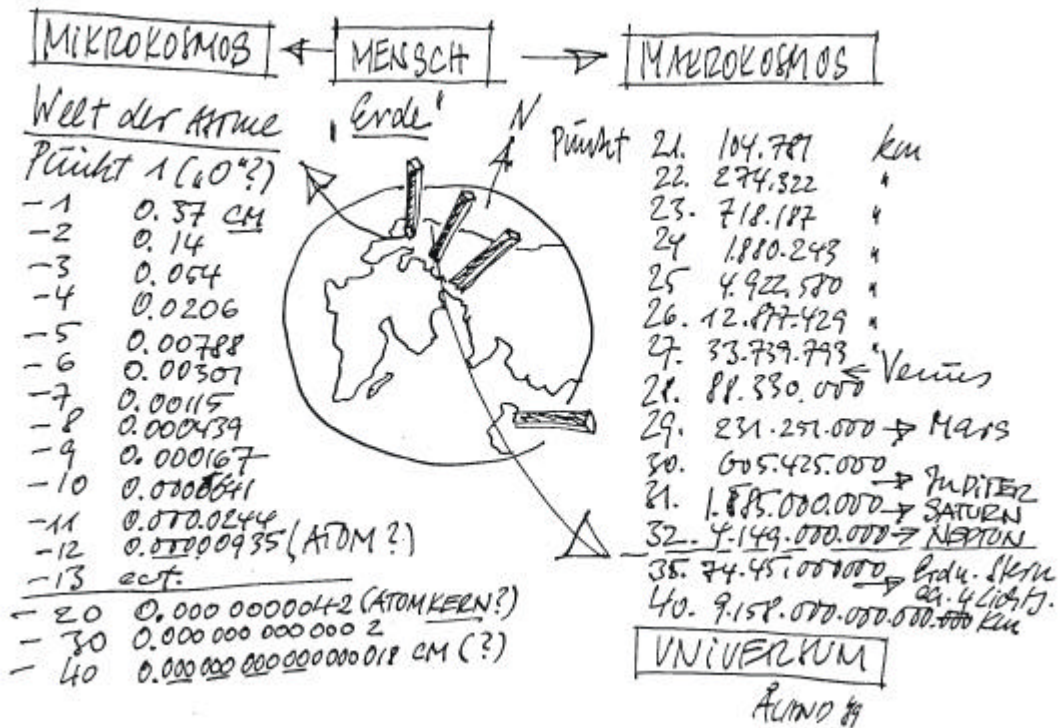 MIKROKOSMOS
MENSCH
MAKROKOSMOS
Welt der Atome
Pünkt 1 („0"?)
-1 0.37 CM
-2 0.14
-3 0.054
-4 0.0206
-5 0.00788
-6 0.00301
-7 0.00115
-8 0.000439
-9 0.000167
-10
-11 0.000.0244
-12 0.00000935 (ATOM?)
-13 ect.
-20 0.000 0000042 (ATOMKERN?)
-30 0.000 000 000 000 2
-40 CM (?)
„Erde"
N
Pünkt 21. 104.781 km
22. 274.322 "
23. 718.187 "
24 1.880.243 "
25 4.922.580 "
26. 12.877.429 "
27. 33.739.793 "
28. 88.330.000 Venüs
29. 231.251.000 Mars
30. 605.425.000
31. 1.585.000.000 JUPITER
SATURN
32. 4.149.000.000 NEPTUN
35. Stern
ca. 4 Lichtj.
40. 9.158.000.000.000.000 km
UNIVERSUM
ÅLAND 89